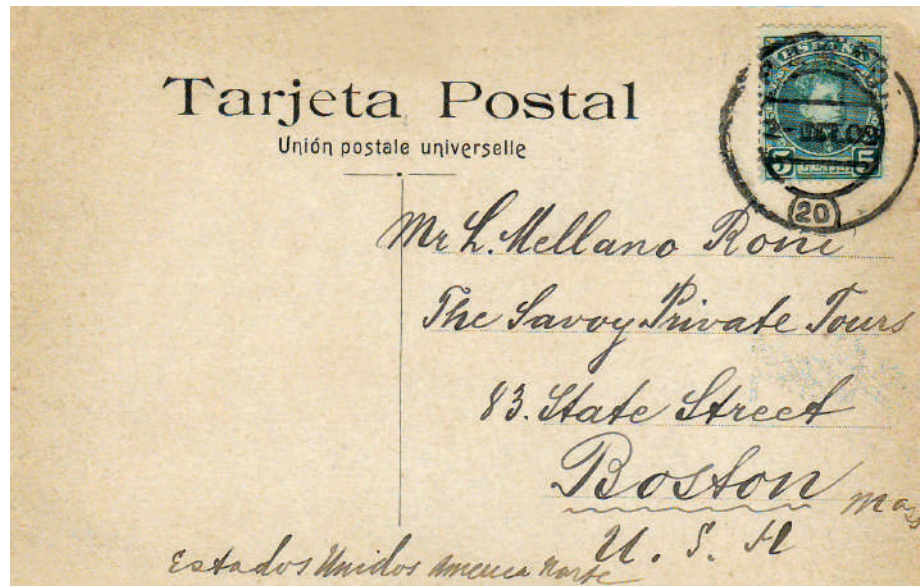 Tarjeta Postal
Unión postale universelle
5 5
20
Mr L. Mellano Roni
The Savoy Private Tours
83. State Street
Boston Mass
U. S. A
Estados Unidos America Norte